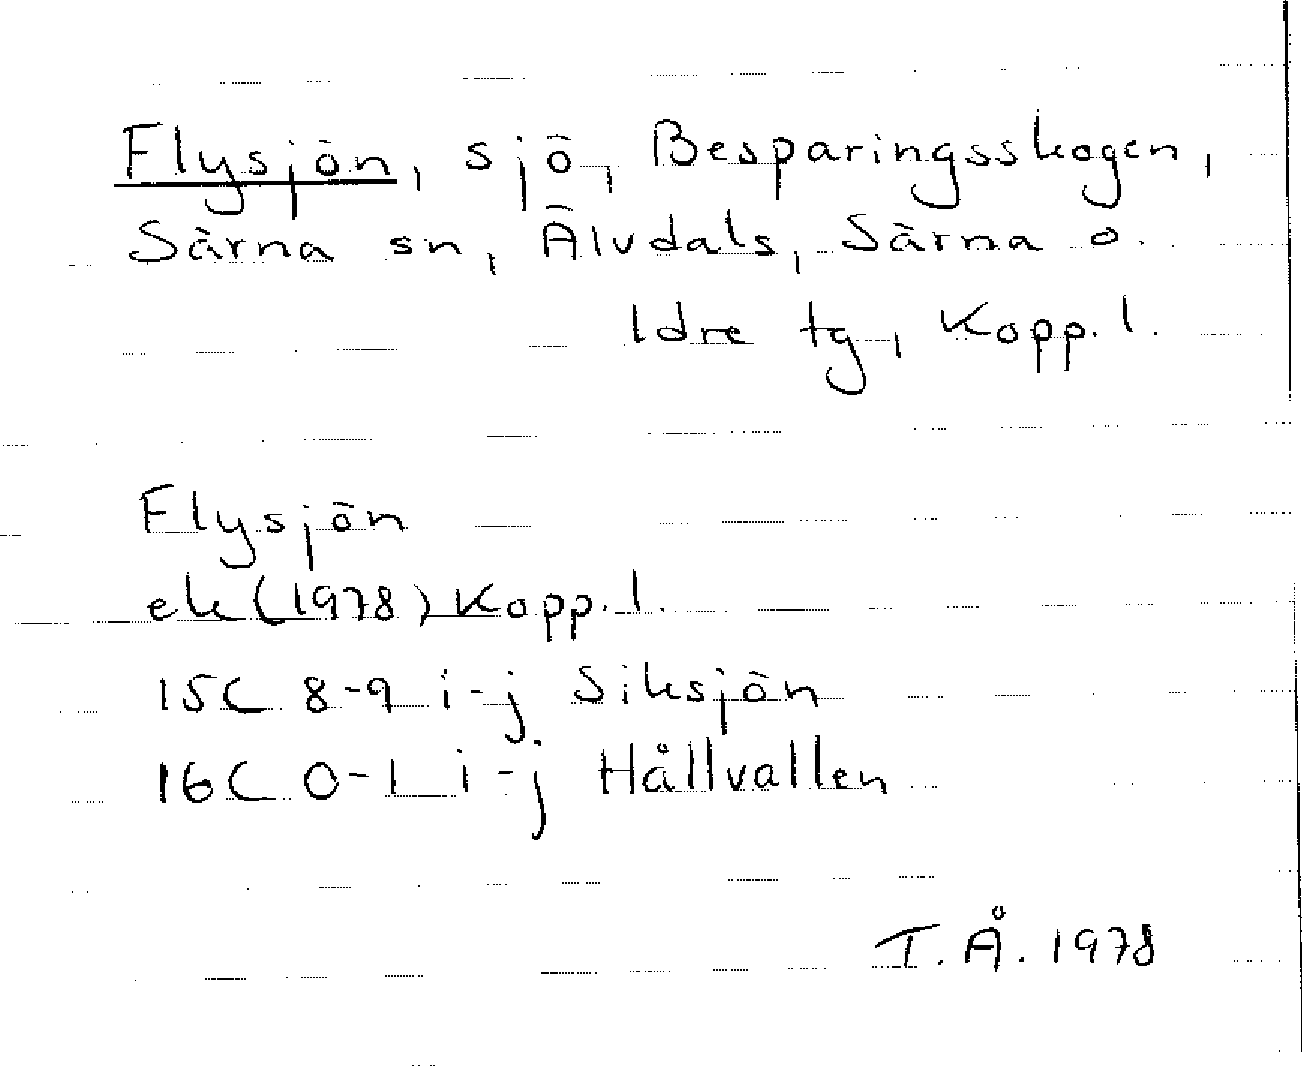 Flysjön, sjö, Besparingsskogen,
Särna sn, Älvdals, Särna o.
Idre tg, Kopp. l.
Flysjön
ek (1978) Kopp. l.
15C 8-9 i-j Siksjön
16C 0-1 i-j Hållvallen
T. Å. 1978